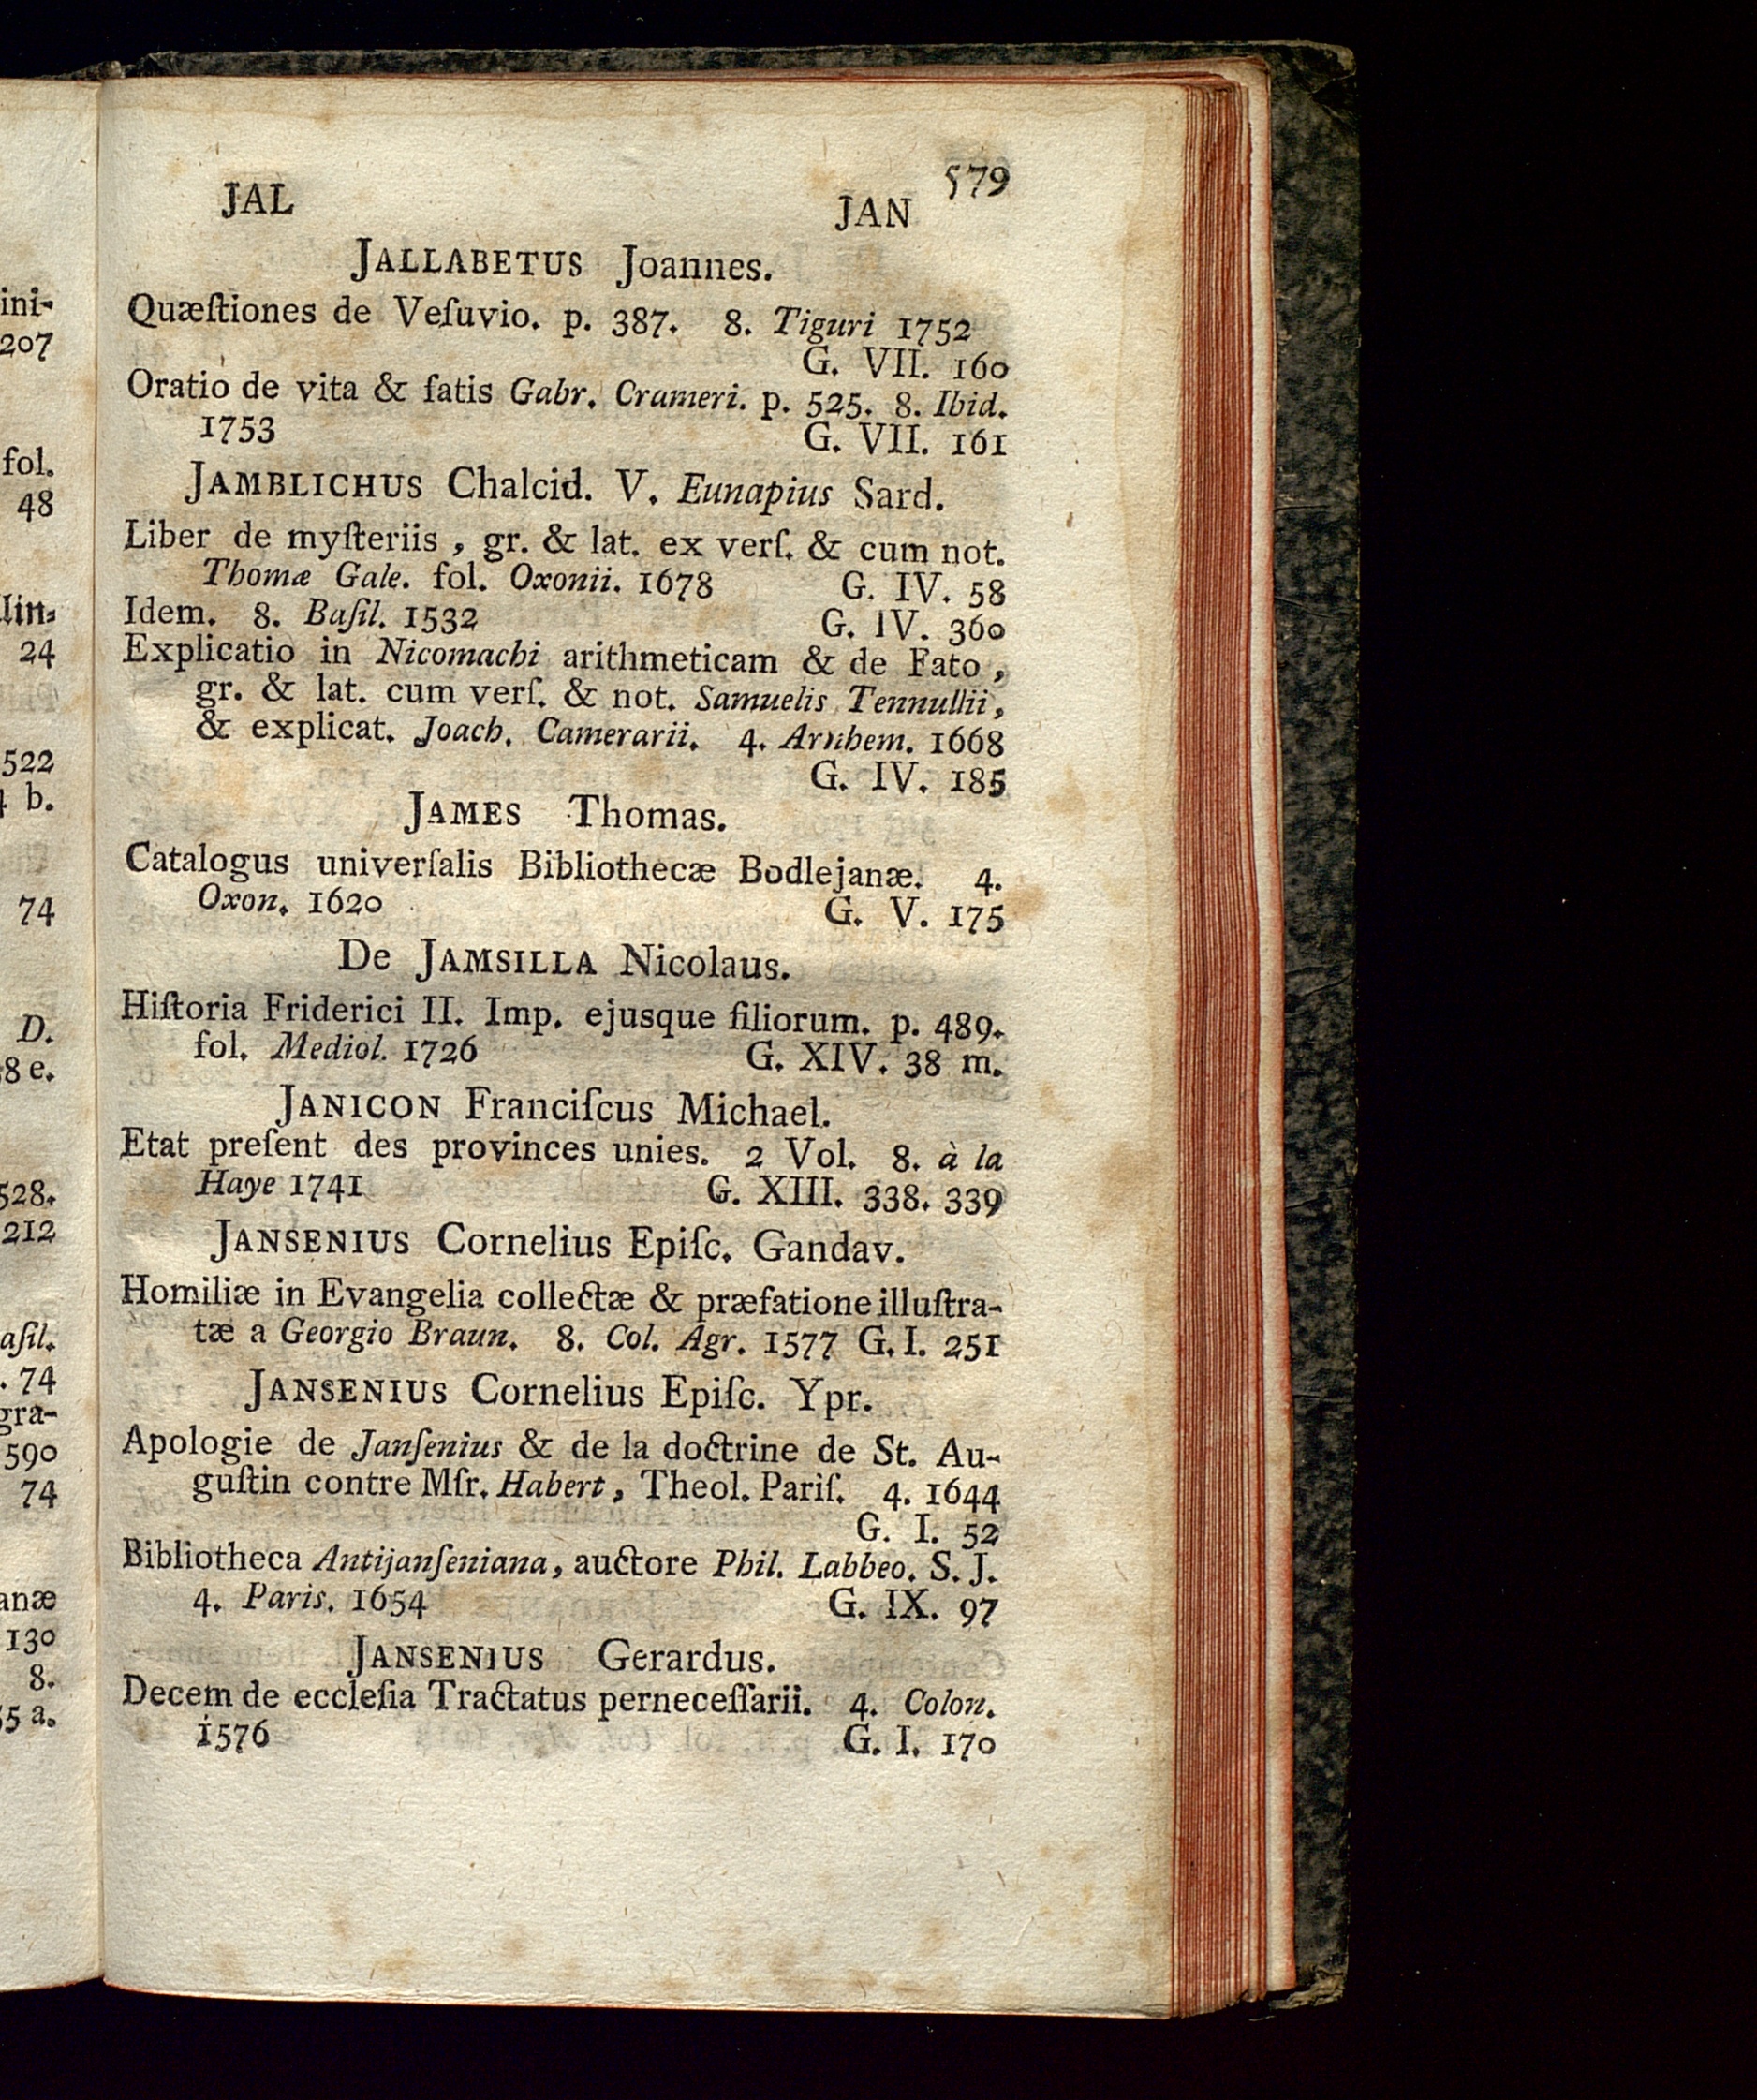 579
JAL JAN
JALLABETUS Joannes.
Quæſtiones de Veſuvio. p. 387. 8. Tiguri 1752
G. VII. 160
Oratio de vita & fatis Gabr. Crameri. p. 525. 8. Ibid.
1753 G. VII. 161
JAMBLICHUS Chalcid. V. Eunapius Sard.
Liber de myſteriis, gr. & lat. ex verſ. & cum not.
Thomæ Gale. fol. Oxonii. 1678 G. IV. 58
Idem. 8. Baſil. 1532 G. IV. 360
Explicatio in Nicomachi arithmeticam & de Fato,
gr. & lat. cum verſ. & not. Samuelis Tennullii,
& explicat. Joach. Camerarii. 4. Arnhem. 1668
G. IV. 185
JAMES Thomas.
Catalogus univerſalis Bibliothecæ Bodlejanæ. 4.
Oxon. 1620 G. V. 175
De JAMSILLA Nicolaus.
Hiſtoria Friderici II. Imp. ejusque filiorum. p. 489.
fol. Mediol. 1726 G. XIV. 38 m.
JANICON Franciſcus Michael.
Etat preſent des provinces unies. 2 Vol. 8. à la
Haye 1741 G. XIII. 338. 339
JANSENIUS Cornelius Epiſc. Gandav.
Homiliæ in Evangelia collectæ & præfatione illuſtra-
tæ a Georgio Braun. 8. Col. Agr. 1577 G. I. 251
JANSENIUS Cornelius Epiſc. Ypr.
Apologie de Janſenius & de la doctrine de St. Au-
guſtin contre Mſr. Habert, Theol. Pariſ. 4. 1644
G. I. 52
Bibliotheca Antijanſeniana, auctore Phil. Labbeo. S. J.
4. Paris. 1654 G. IX. 97
JANSENIUS Gerardus.
Decem de eccleſia Tractatus perneceſſarii. 4. Colon.
1576 G. I. 170